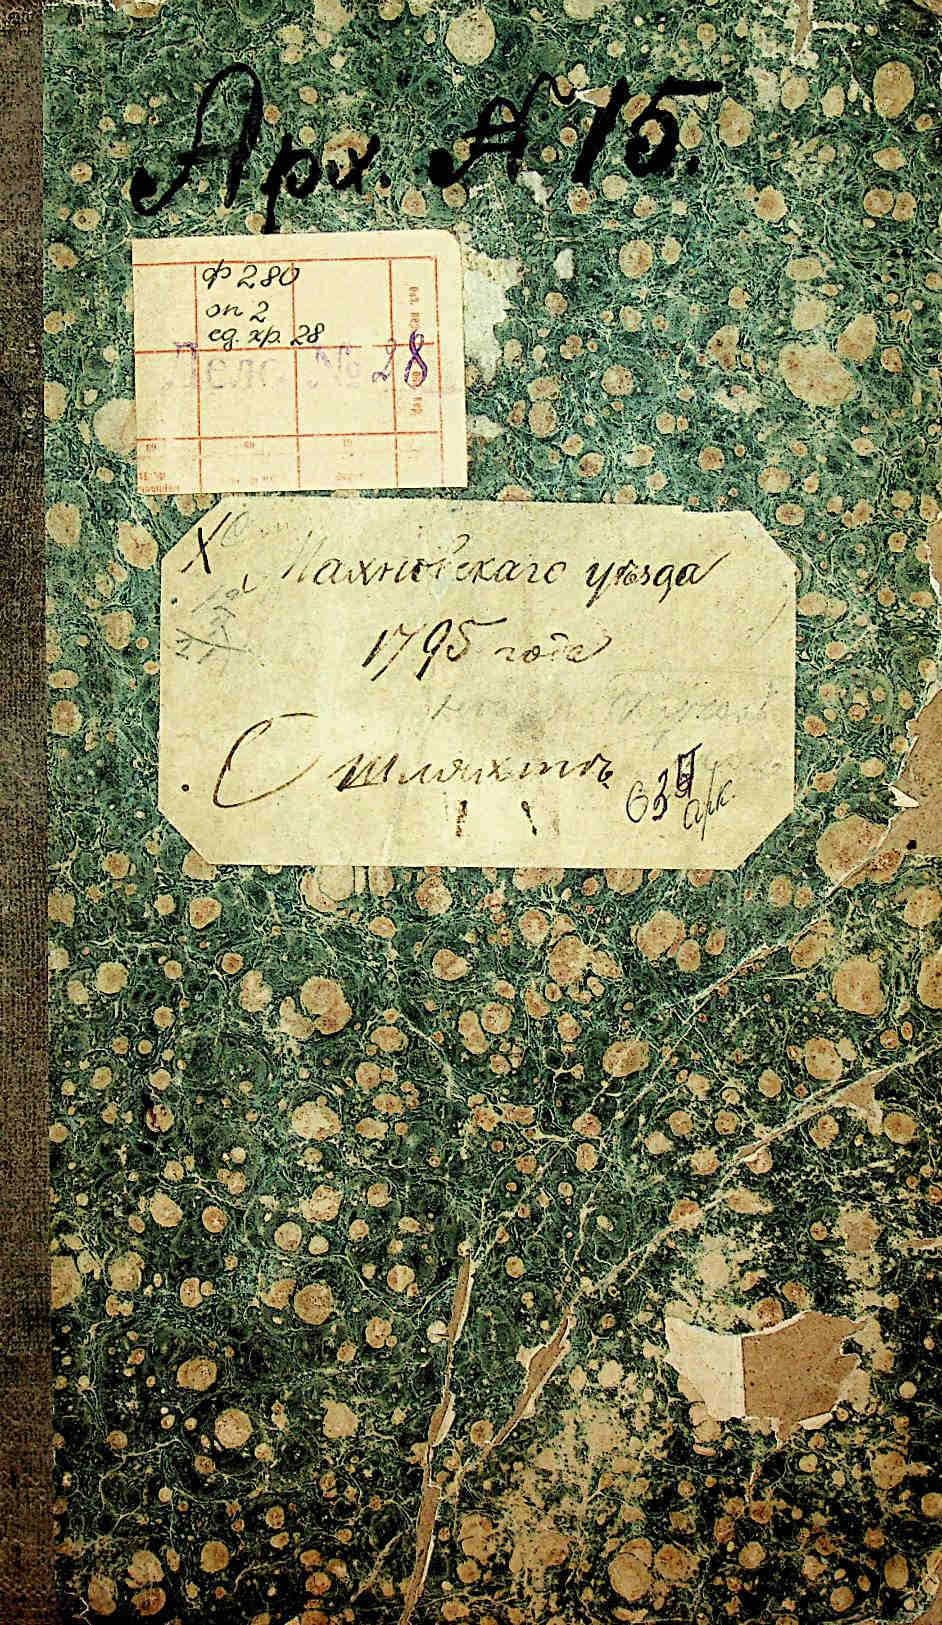 Арх. № 15.
ф 280
оп 2
ед. хр. 28
Дело № 28
X
Махновскаго уѣзда
1795 года
О шляхтѣ
арк.